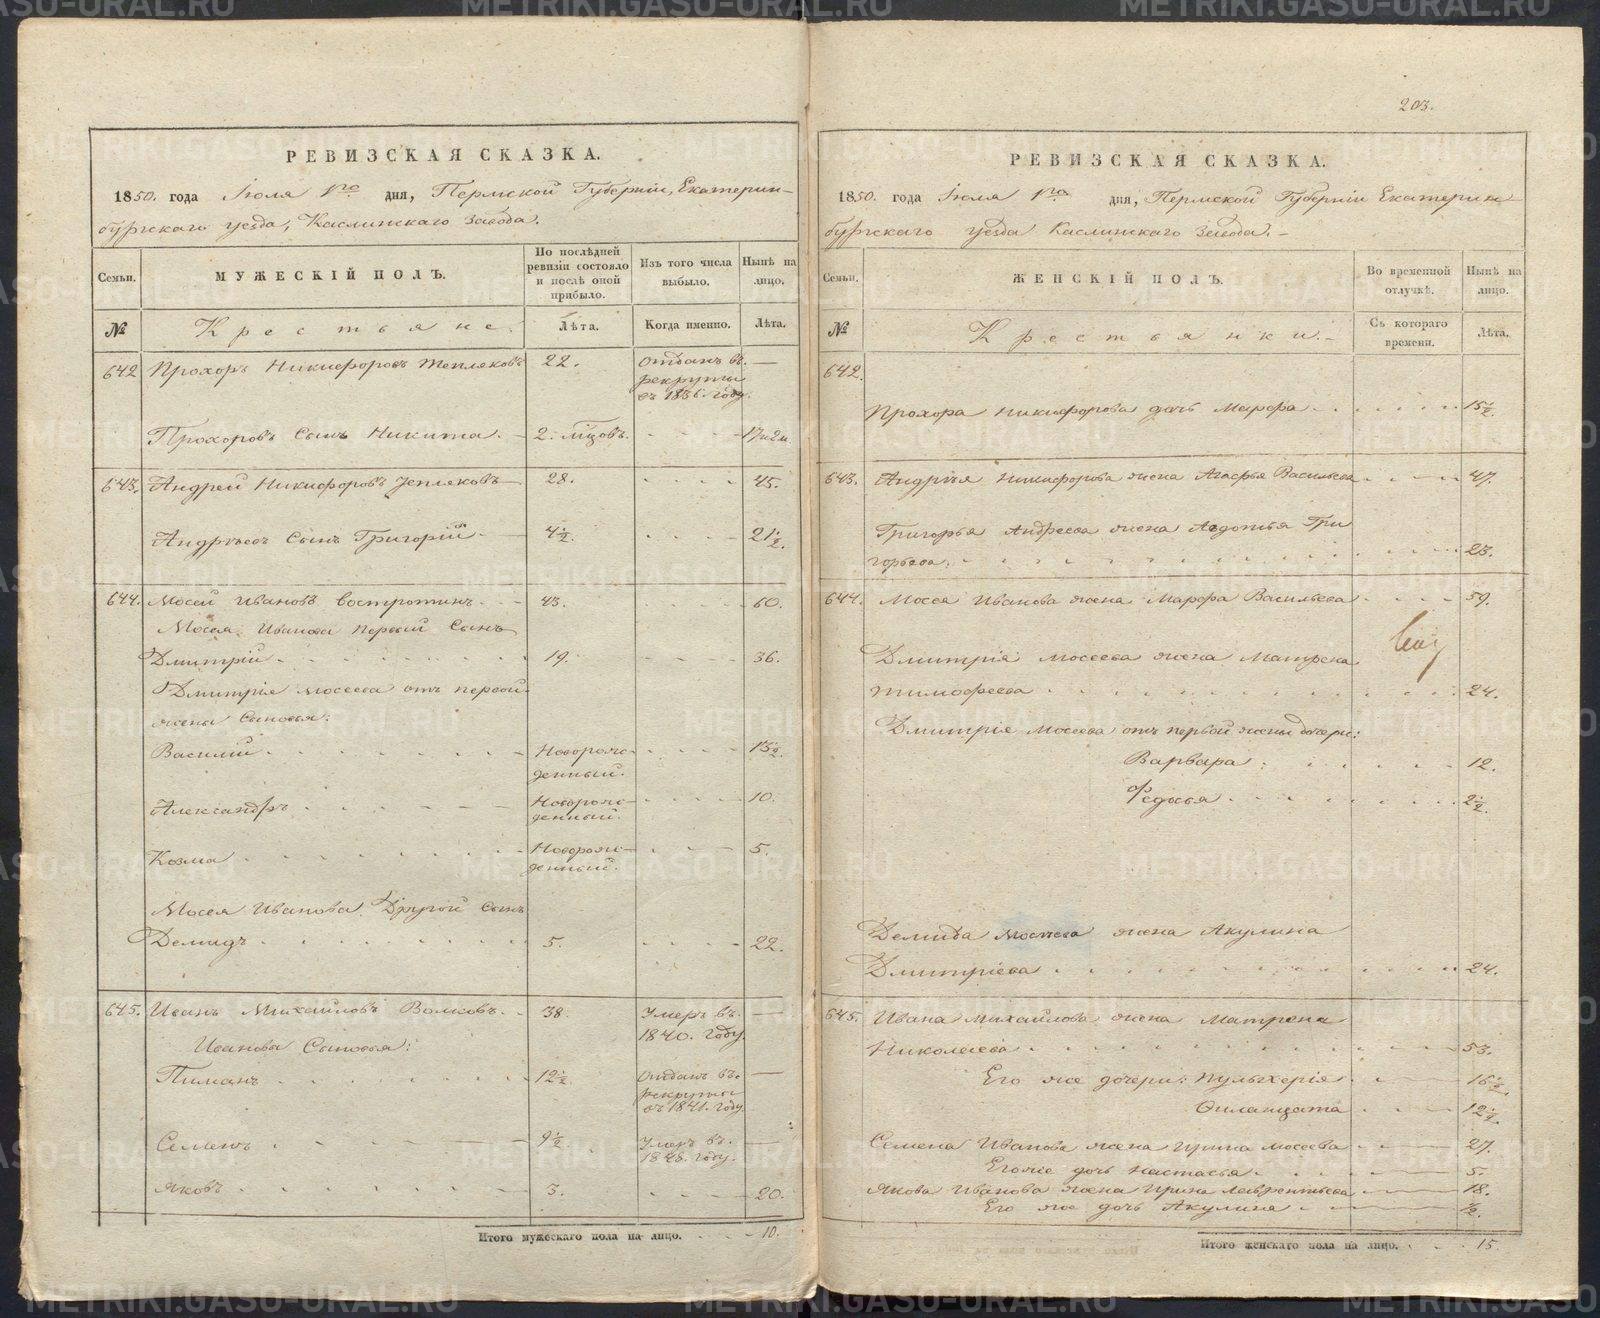 203.
РЕВИЗСКАЯ СКАЗКА.
1850. года Іюля 1го дня, Пермской Губерніи, Екатерин-
бургскаго уезда, Каслинскаго Завода.
Семьи.
МУЖЕСКІЙ ПОЛЪ.
По послѣдней ревизіи состояло и послѣ оной прибыло.
Изъ того числа выбыло.
Нынѣ на лицо.
№
Крестьяне.
Лѣта.
Когда именно.
Лѣта.
642 Прохоръ Никифоровъ Тепляковъ 22. Отданъ въ —
рекруты
въ 1836. году.
Прохоровъ Сынъ Никита. — 2. 17
643. Андрей Никифоровъ Тепляковъ 28. 45.
Андреевъ Сынъ Григорій. 4½. 21½.
644. Мосей Ивановъ Востротинъ. 43. 60.
Мосея Иванова первый Сынъ
Дмитрій. 19. 36.
Дмитрія Мосеева отъ первой
жены Сыновья:
Василий. Новорож- 13½.
денный.
Александръ Новорож- 10.
денный.
Козма Новорож- 5.
денный.
Мосея Иванова Другой Сынъ
Демидъ 5. 22.
645. Иванъ Михайловъ Волковъ. 38. Умеръ въ —
1840. году.
Ивановы Сыновья:
Пиманъ 12½ Отданъ въ —
рекруты
въ 1841. году
Семенъ 9½ Умеръ въ —
1848. году.
Яковъ 3. 20.
Итого мужескаго пола на лицо. 10.
РЕВИЗСКАЯ СКАЗКА.
1850. года Іюля 1го дня, Пермской Губерніи Екатерин-
бургскаго уезда Каслинскаго Завода.
Семьи.
ЖЕНСКІЙ ПОЛЪ.
Во временной отлучкѣ.
Нынѣ на лицо.
№
Крестьянки.
Съ котораго времени.
Лѣта.
642.
Прохора Никифорова дочь Марфа. 15½.
643. Андрея Никифорова жена Агафья Васильева 47.
Григорья Андреева жена Авдотья Гри
горьева. 23.
644. Мосея Иванова жена Марфа Васильева 59.
Дмитрія Мосеева жена Матрена
Тимофеева 24.
Дмитрія Мосеева отъ первой жены дочери:
Варвара 12.
Федосья 2½.
Демида Мосеева жена Акулина
Дмитріева 24.
645. Ивана Михайлова жена Матрена
Николаева 53.
Его же дочери: Пульхерія 16½
12½.
Семена Иванова жена Ирина Мосеева 27.
Его же дочь Настасья 5.
Якова Иванова жена Ирина Лаврентьева 18.
Его же дочь Акулина ½.
Итого женскаго пола на лицо. 15.
METRIKI.GASO-URAL.RU